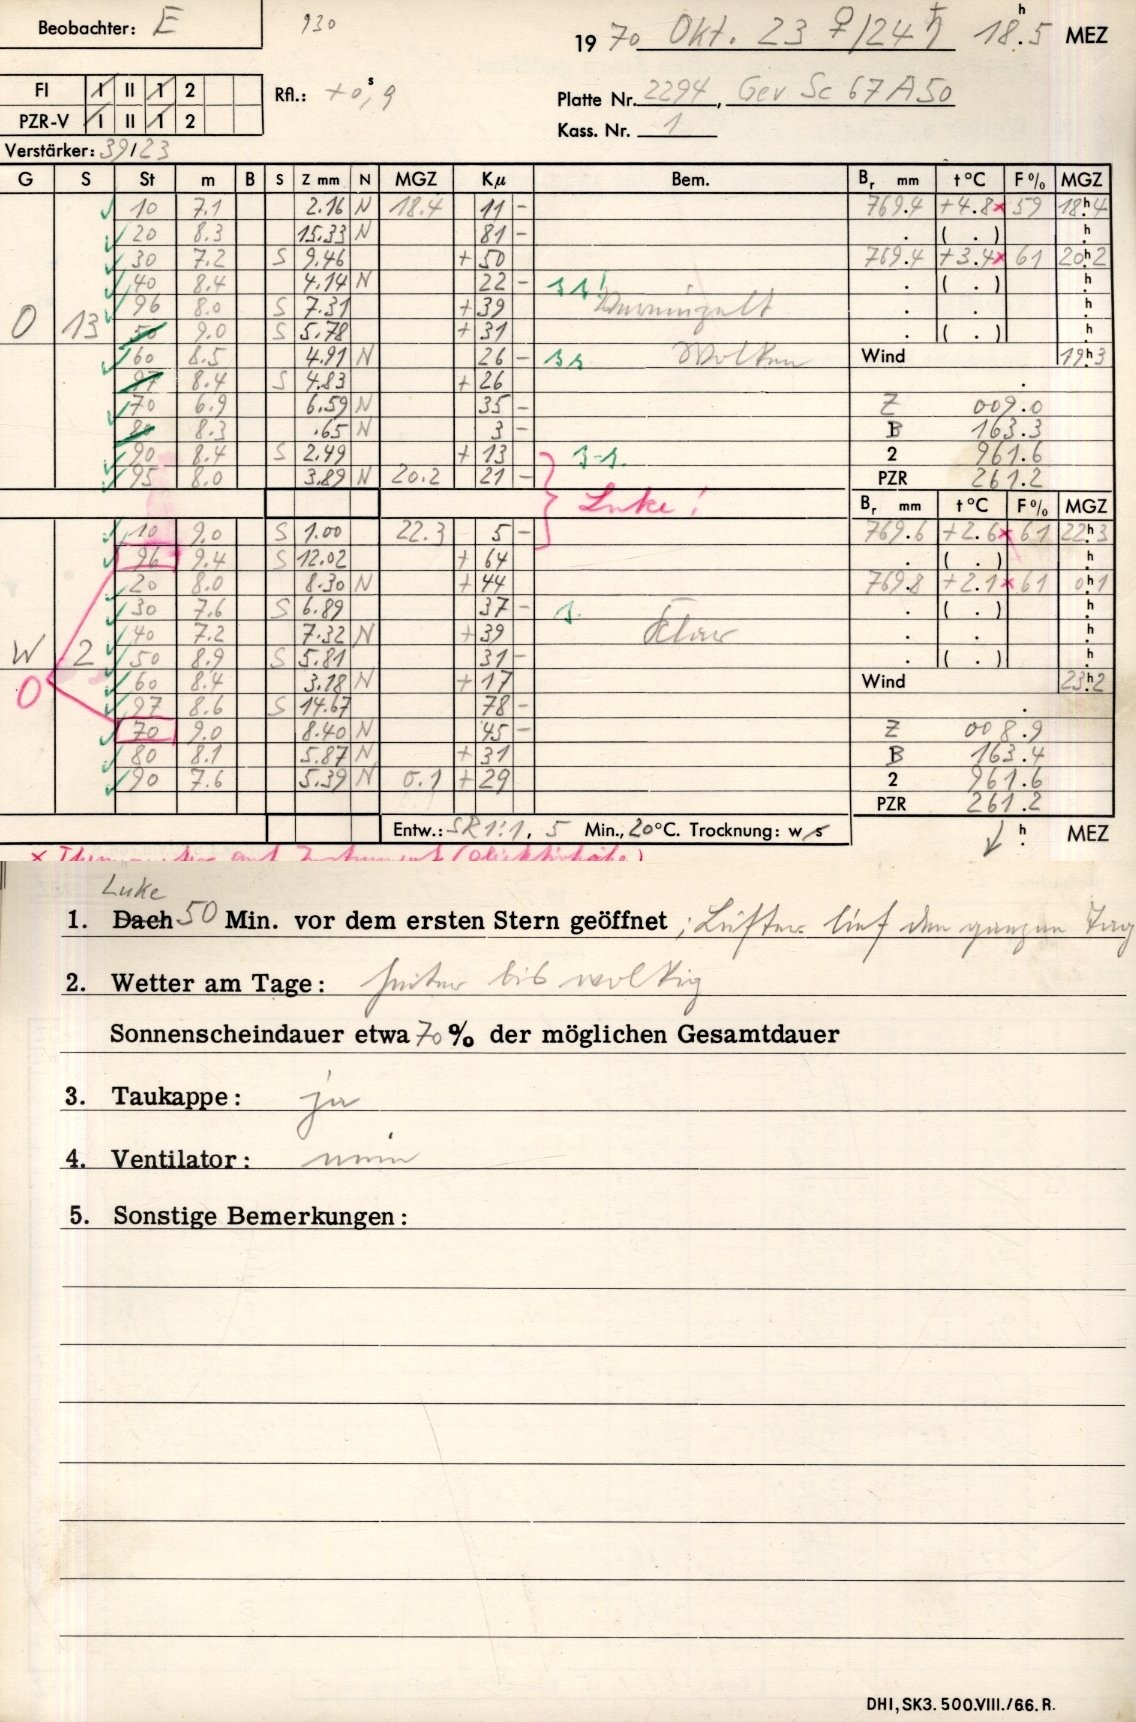 Beobachter: E 930
19 70 Okt. 23 ♀/24 ♄ 18.5 h MEZ
FI I II 1 2
Rfl.: +0,9 s
Platte Nr. 2294, Gev Sc 67 A 50
PZR-V I II 1 2
Kass. Nr. 1
Verstärker: 39/23
G S St m B S Z mm N MGZ Kμ Bem. Br mm t°C F% MGZ
10 7.1 2.16 N 18.4 11 - 769.4 +4.8x 59 18h4
20 8.3 15.33 N 81 - . ( . ) h
30 7.2 S 9.46 + 50 769.4 +3.4x 61 20h2
40 8.4 4.14 N 22 - s s! . ( . ) h
96 8.0 S 7.31 + 39 Vereinzelt . . h
O 13 50 9.0 S 5.78 + 31 . ( . ) h
60 8.5 4.91 N 26 - s s Wolken Wind 19h3
97 8.4 S 4.83 + 26 .
70 6.9 6.59 N 35 - Z 009.0
80 8.3 .65 N 3 - B 163.3
90 8.4 S 2.49 + 13 s-s. 2 961.6
95 8.0 3.89 N 20.2 21 - PZR 261.2
Luke! Br mm t°C F% MGZ
10 9.0 S 1.00 22.3 5 - 769.6 +2.6x 61 22h3
96 9.4 S 12.02 + 64 . ( . ) h
20 8.0 8.30 N + 44 769.8 +2.1x 61 0h1
30 7.6 S 6.89 37 - s. . ( . ) h
40 7.2 7.32 N + 39 Klar . . h
W 2 50 8.9 S 5.81 31 - . ( . ) h
O 60 8.4 3.18 N + 17 Wind 23h2
97 8.6 S 14.67 78 - .
70 9.0 8.40 N 45 - Z 008.9
80 8.1 5.87 N + 31 B 163.4
90 7.6 5.39 N 0.1 + 29 2 961.6
PZR 261.2
Entw.: SR 1:1, 5 Min., 20°C. Trocknung: w s h MEZ
x Thermometer auf Instrument (Objektivhöhe)
Luke
1. Dach 50 Min. vor dem ersten Stern geöffnet; Lüfter lief den ganzen Tag
2. Wetter am Tage: heiter bis wolkig
Sonnenscheindauer etwa 70 % der möglichen Gesamtdauer
3. Taukappe: ja
4. Ventilator: nein
5. Sonstige Bemerkungen:
DHI, SK3. 500.VIII./66. R.